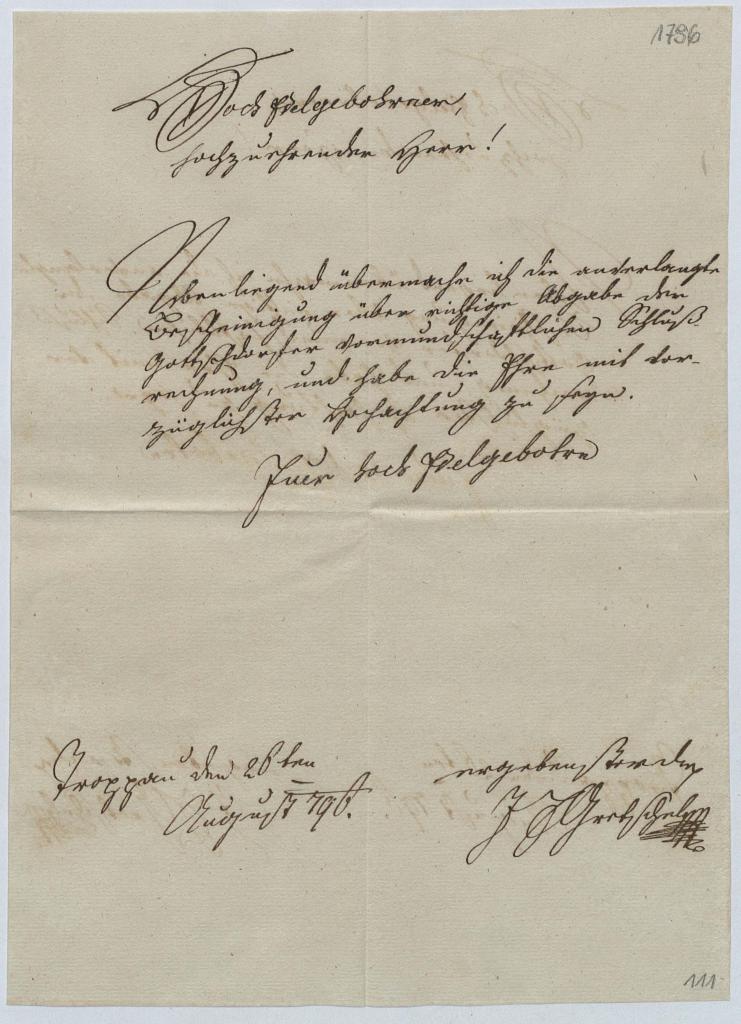 1796
Hoch Edelgebohrner,
hochzuehrender Herr!
Nebenliegend übermache ich die anverlangte
Bescheinigung über richtige Abgabe der
Gottschdorfer vormundschaftlichen Schluß
rechnung, und habe die Ehre mit vor-
züglichster Hochachtung zu seyn.
Euer Hoch Edelgebohrn
Troppau den 26ten
August 796.
ergebenster
J J Gretschel
111